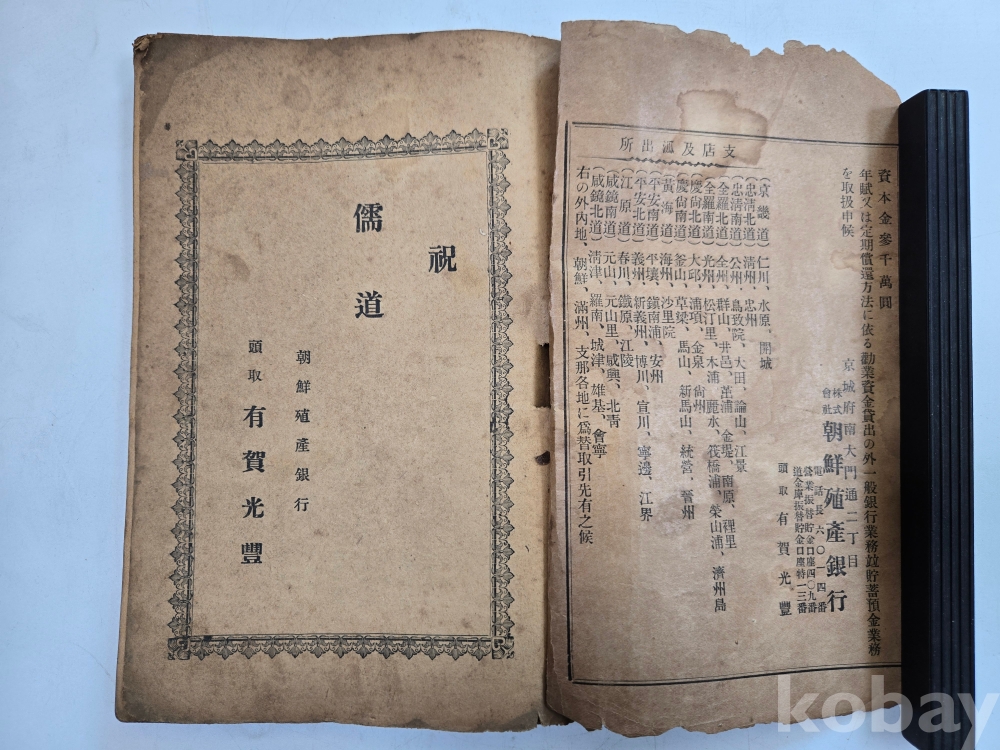 資本金參千萬圓
年賦又は定期償還方法に依る勸業資金貸出の外一般銀行業務並貯蓄預金業務
を取扱申候
京城府南大門通二丁目
株式會社朝鮮殖產銀行
電話長六〇一四番
營業振替貯金口座四〇九番
道金庫振替貯金口座特一三番
頭取 有賀光豐
支店及派出所
(京畿道) 仁川、水原、開城
(忠淸北道) 淸州、忠州
(忠淸南道) 公州、鳥致院、大田、論山、江景
(全羅北道) 全州、群山、井邑、茁浦、金堤、南原、裡里
(全羅南道) 光州、松汀里、木浦、麗水、筏橋浦、榮山浦、濟州島
(慶尙北道) 大邱、浦項、金泉、尙州
(慶尙南道) 釜山、草梁、馬山、新馬山、統營、晉州
(黃海道) 海州、沙里院
(平安南道) 平壤、鎭南浦、安州
(平安北道) 義州、新義州、博川、宣川、寧邊、江界
(江原道) 春川、鐵原、江陵
(咸鏡南道) 元山、元山里、咸興、北靑
(咸鏡北道) 淸津、羅南、城津、雄基、會寧
右の外內地、朝鮮、滿州、支那各地に爲替取引先有之候
祝
儒道
朝鮮殖產銀行
頭取 有賀光豐
kobay